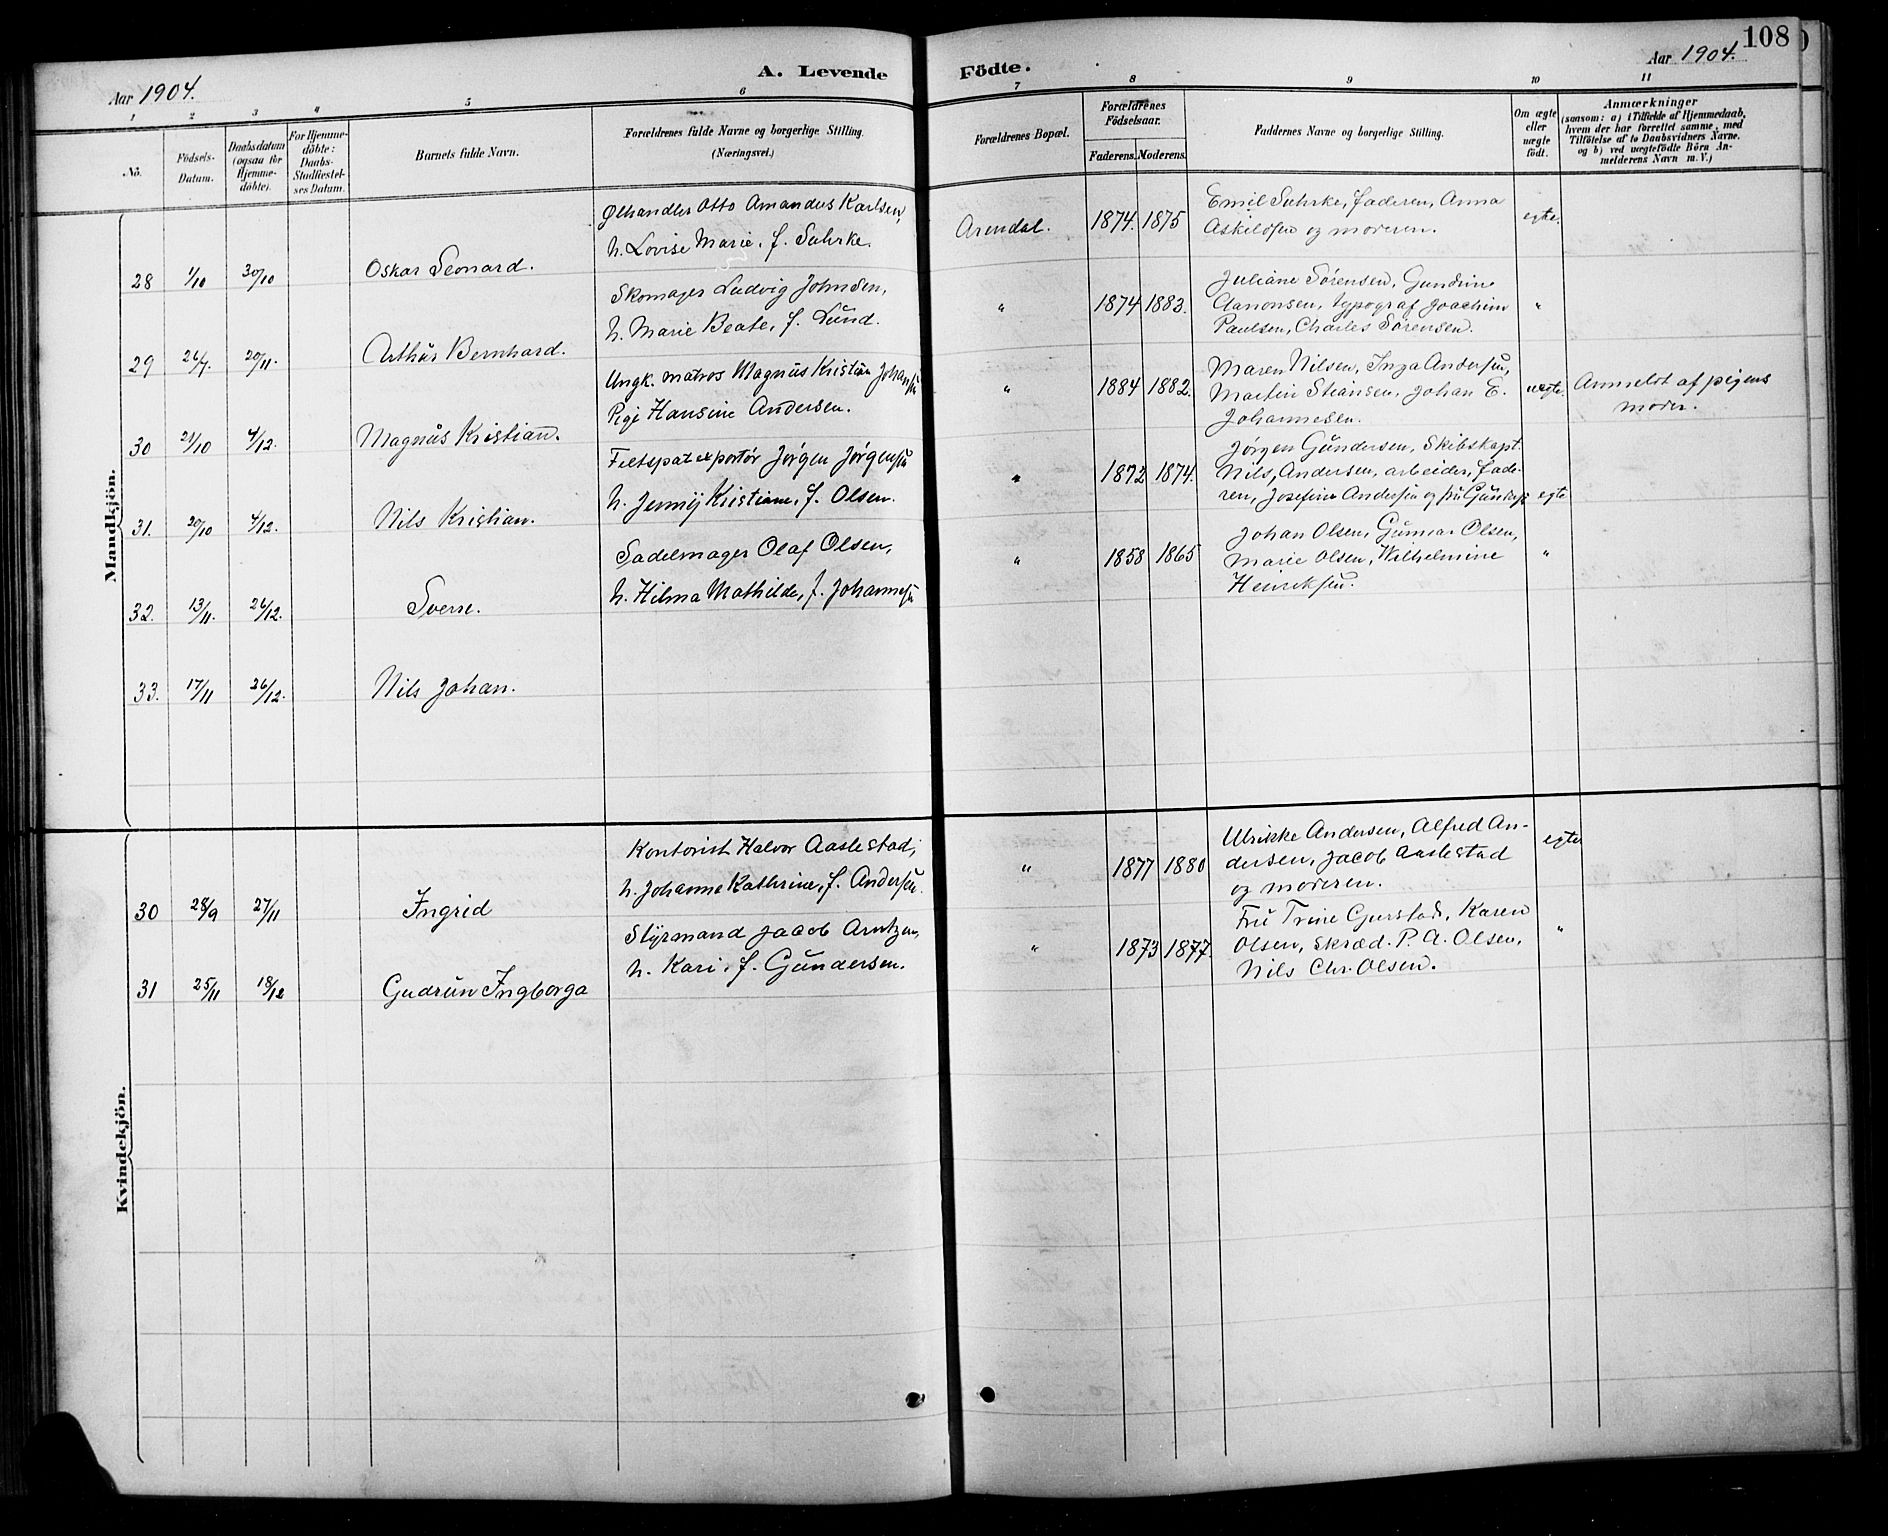 108
Aar 1904.
A. Levende
Födte.
Aar 1904.
1
2
3
4
5
6
7
8
9
10
11
No.
Födsels-
Datum.
Daabsdatum
(ogsaa for
Hjemme-
döbte).
For Hjemme-
döbte:
Daabs-
Stadfæstel-
ses Datum.
Barnets fulde Navn.
Forældrenes fulde Navne og borgerlige Stilling.
(Næringsvei.)
Forældrenes Bopæl.
Forældrenes
Födselsaar.
Faderens.
Moderens.
Faddernes Navne og borgerlige Stilling.
Om ægte
eller
uægte
födt.
Anmærkninger
(saasom: a) i Tilfælde af Hjemmedaab,
hvem der har forrettet samme, med
Tilföielse af to Daabsvidners Navne.
og b) ved uægtefödte Börn An-
melderens Navn m. V.)
Mandkjön.
28 1/10 30/10 Oskar Leonard.
Ølhandler Otto Amandus Karlsen,
h. Lovise Marie, f. Suhrke.
Arendal. 1874. 1875
Emil Suhrke, faderen, Anna
Askildsen og moderen.
egte.
29 26/7. 20/11. Arthur Bernhard.
Skomager Ludvig Johnsen,
h. Marie Beate, f. Lund.
" 1874 1883.
Juliane Sørensen, Gundine
Aanonsen, typograf Joachim
Paulsen, Charles Sørensen.
"
30 21/10 4/12. Magnus Kristian.
Ungk. matros Magnus Kristian Johansen
Pige Hansine Andersen.
" 1884 1882.
Maren Nilsen, Inga Andersen,
Martin Stiansen, Johan E.
Johannesen.
uegte.
Anmeldt af pigens
moder.
31. 20/10 4/12. Nils Kristian.
Feltspatexportør Jørgen Jørgensen
h. Jenny Kristiane, f. Olsen.
" 1872 1874.
Jørgen Gundersen, Skibskapt.
Nils Andersen, arbeider, fade-
ren, Josefine Andersen og fru Gundersen
egte
32. 13/11. 26/12. Sverre.
Sadelmager Olaf Olsen,
h. Hilma Mathilde, f. Johannesen
" 1858 1865
Johan Olsen, Gunnar Olsen,
Marie Olsen, Wilhelmine
Henriksen.
"
33. 17/11 26/12. Nils Johan.
Kvindekjön.
30 28/9 27/11 Ingrid
Kontorist Halvor Aaslestad,
h. Johanne Kathrine, f. Andersen.
" 1877 1880
Ulrikke Andersen, Alfred An-
dersen, Jacob Aaslestad
og moderen.
egte
31 25/11 18/12 Gudrun Ingborga
Styrmand Jacob Arntzen,
h. Kari, f. Gundersen.
" 1873 1877.
Fru Trine Gjerstad, Karen
Olsen, skræd. P. A. Olsen,
Nils Chr. Olsen.
"